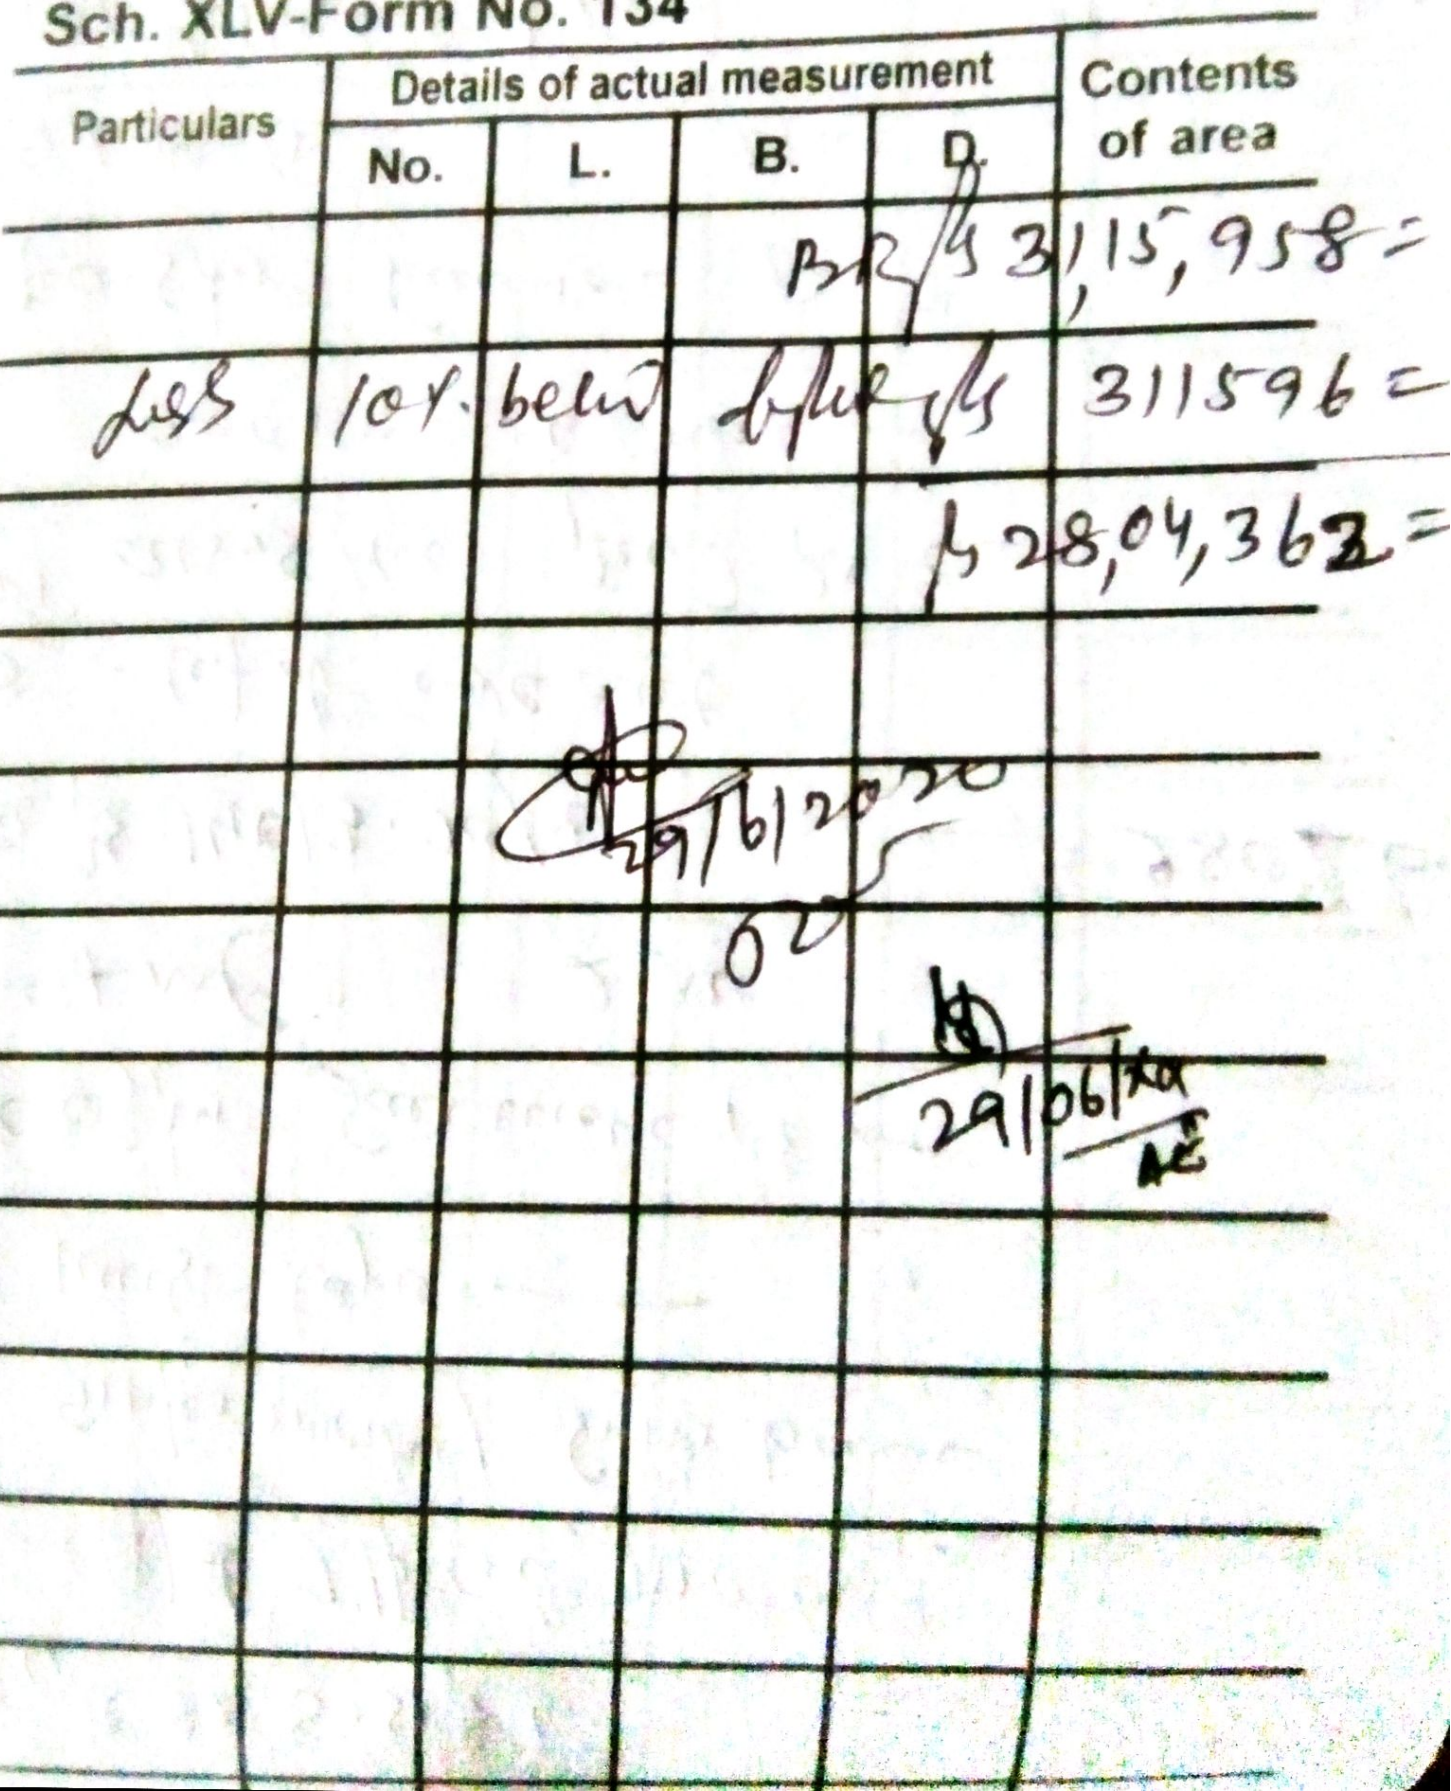 Sch. XLV-Form No. 134
Particulars Details of actual measurement Contents of area
No. L. B. D.
31,15,958=
Less 10%. below 311596=
28,04,362=
29/6/2020
29/06/
AE